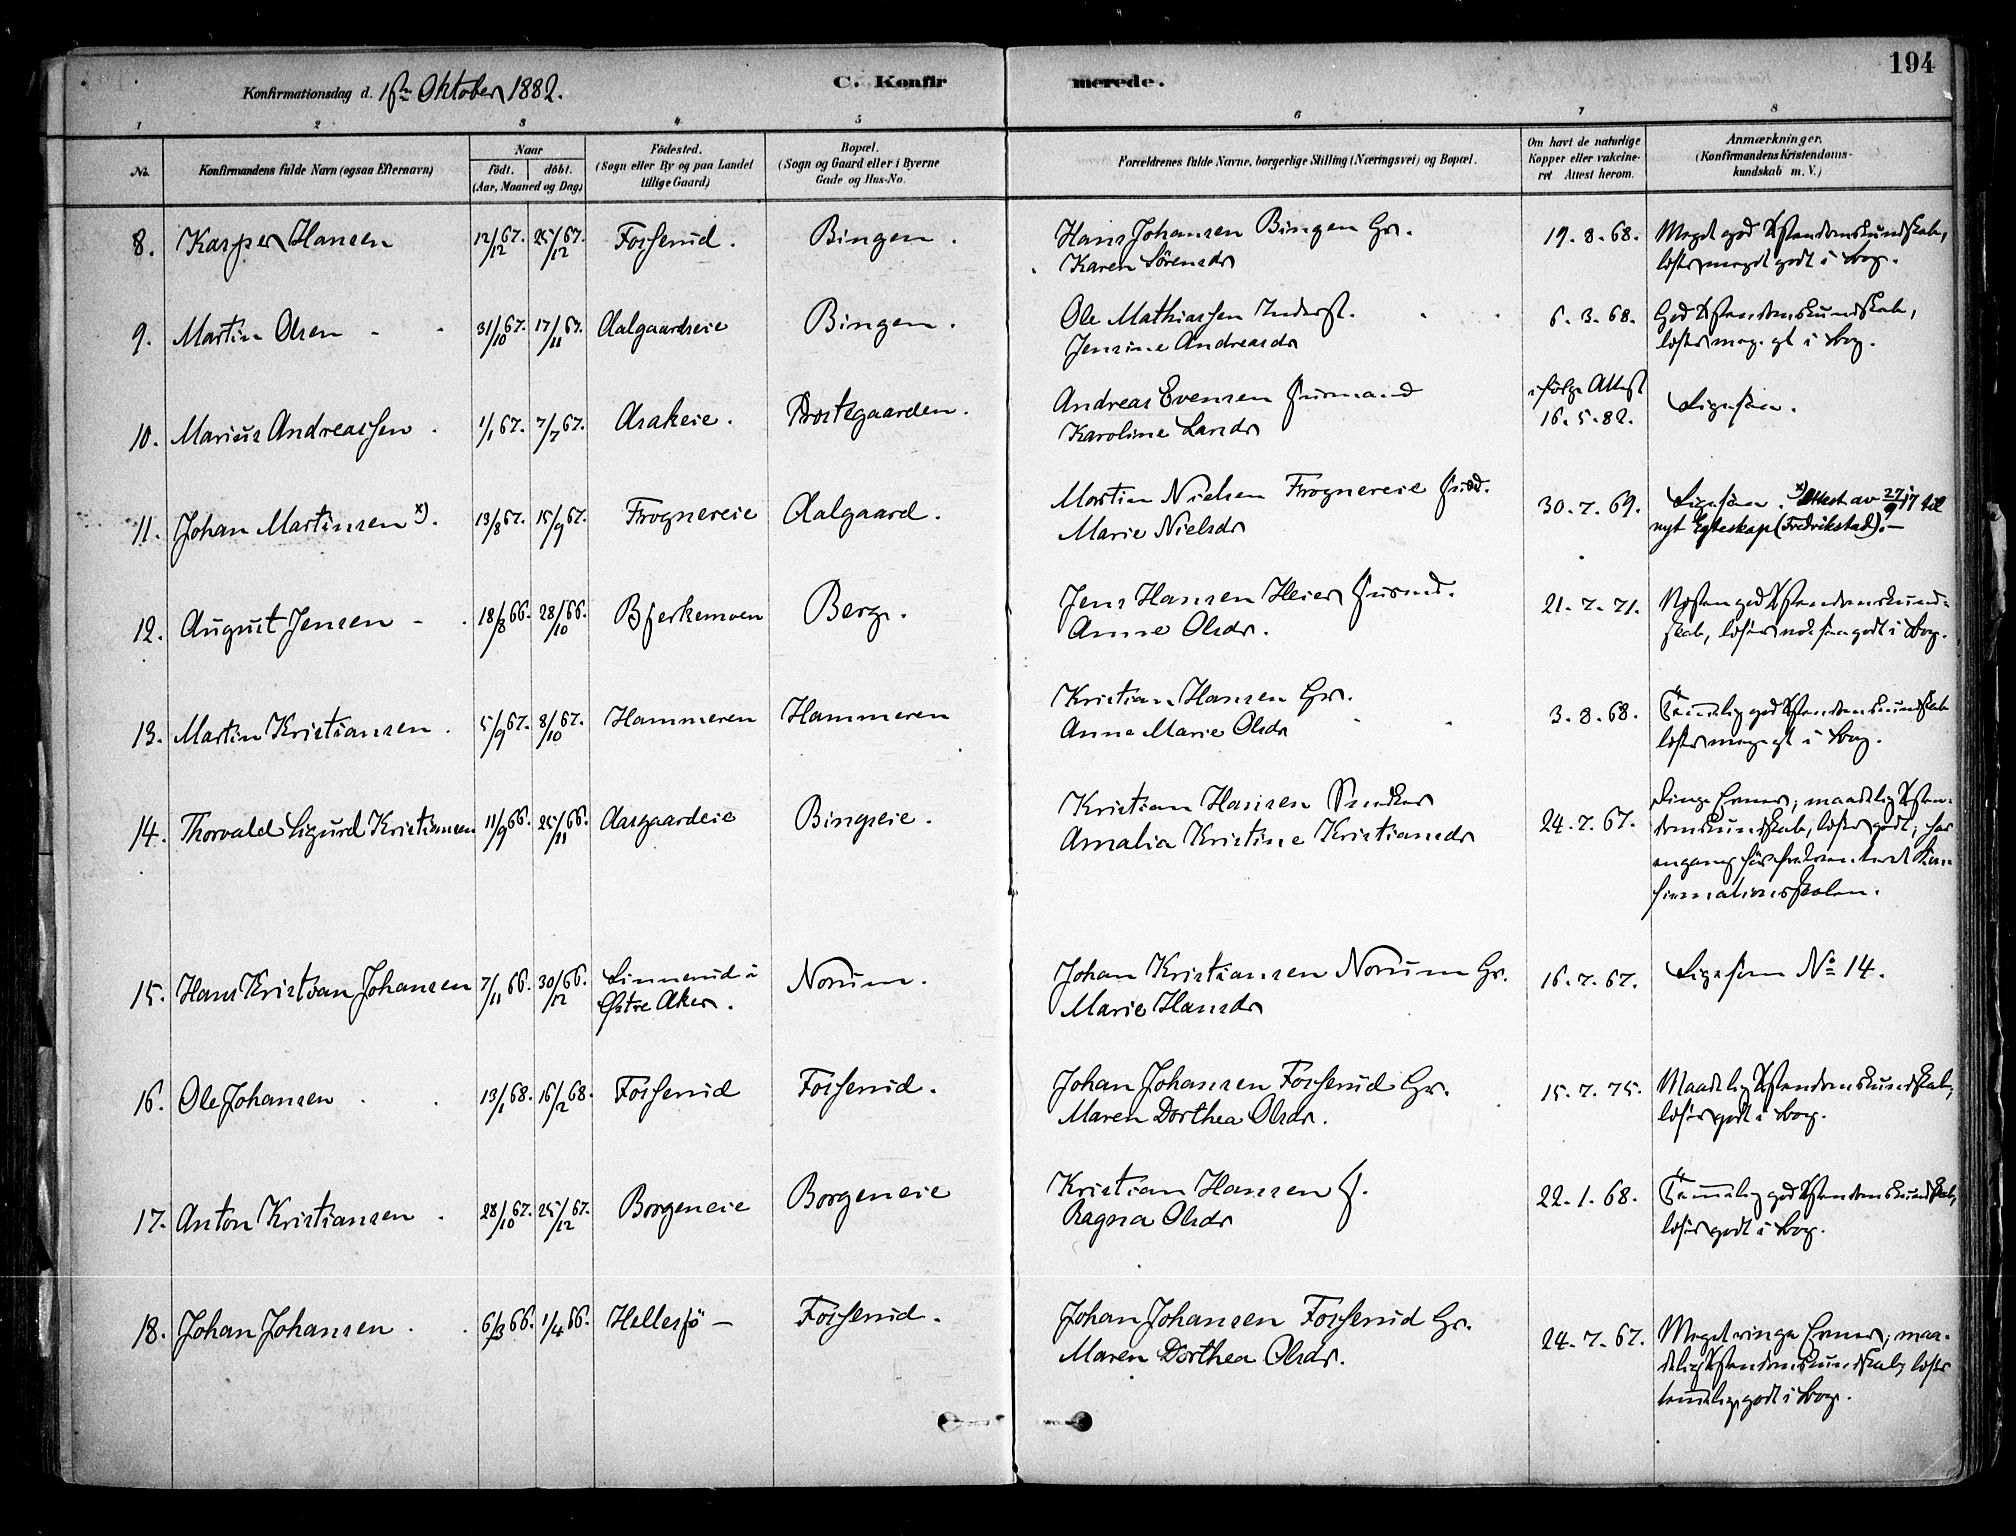 194
Konfirmationsdag d. 1ste Oktober 1882.
C. Konfirmerede.
1 2 3 4 5 6 7 8
No.
Konfirmandens fulde Navn (ogsaa Efternavn)
Naar
födt. döbt.
(Aar, Maaned og Dag)
Födested.
(Sogn eller By og paa Landet
tillige Gaard)
Bopæl.
(Sogn og Gaard eller i Byerne
Gade og Hus-No.
Forældrenes fulde Navne, borgerlige Stilling (Næringsvei) og Bopæl.
Om havt de naturlige
Kopper eller vakcine-
ret Attest herom.
Anmærkninger.
(Konfirmandens Kristendoms-
kundskab m. V.)
8. Kasper Hansen 12/12 67. 25/12 67. Fosserud. Bingen. Hans Johansen Bingen Gr. 19.8.68. Meget god Xstendomskundskab,
Karen Sörensdr læser meget godt i Bog.
9. Martin Olsen 31/10 67. 17/11 67. Aalgaardseie Bingen. Ole Mathiassen Inderst. 6.3.68. God Xstendomskundskab,
Jensine Andreasdr læser meg. gt i Bog.
10. Marius Andreassen 1/1 67. 7/7 67. Asakeie. Prostegaarden. Andreas Evensen Husmand ifölge Attest
Karoline Larsdr 16.5.82. Ligesaa.
11. Johan Martinsen x). 13/8 67. 15/9 67. Frognereie Aalgaard. Martin Nielsen Frognereie Husd. 30.7.69. Ligesaa. x) Attest av 27/9 17 til
Marie Nielsdr nyt Egteskap (Fredrikstad).–
12. August Jensen 18/8 66. 28/10 66. Bjerkemoen Berg. Jens Hansen Heier Husmd. 21.7.71. Næsten god Xstendomskund-
Anne Olsdr. skab, læser nok saa godt i Bog.
13. Martin Kristiansen 5/9 67. 8/10 67. Hammeren Hammeren Kristian Hansen Gr. 3.8.68. Temmelig god Xstendomskundskab
Anne Marie Olsdr læser meg. gt i Bog.
14. Thorvald Sigurd Kristiansen 11/9 66. 25/11 66. Aasgaardeie Bingseie. Kristian Hansen Snedker 24.7.67. Ringe Evner; maadelig Xsten-
Amalia Kristine Kristiansdr domskundskab, læser godt; har
engang för frekventeret Kon-
firmationsskolen.
15. Hans Kristian Johansen 7/11 66. 30/12 66. Linnerud i Norum. Johan Kristiansen Norum Gr. 16.7.67. Ligesom No 14.
Östre Aker. Marie Hansdr
16. Ole Johansen 13/1 68. 16/2 68. Fosserud Fosserud. Johan Johansen Fosserud Gr. 15.7.75. Maadelig Xstendomskundskab,
Maren Dorthea Olsdr. læser godt i Bog.
17. Anton Kristiansen 28/10 67. 25/12 67. Borgeneie Borgeneie Kristian Hansen H. 22.1.68. Temmelig god Xstendomskundskab,
Ragna Olsdr læser godt i Bog.
18. Johan Johansen 6/3 66. 1/4 66. Hellesjö – Fosserud. Johan Johansen Fosserud Gr. 24.7.67. Meget ringe Evner; maa-
Maren Dorthea Olsdr. delig Xstendomskundskab, læser
temmelig godt i Bog.